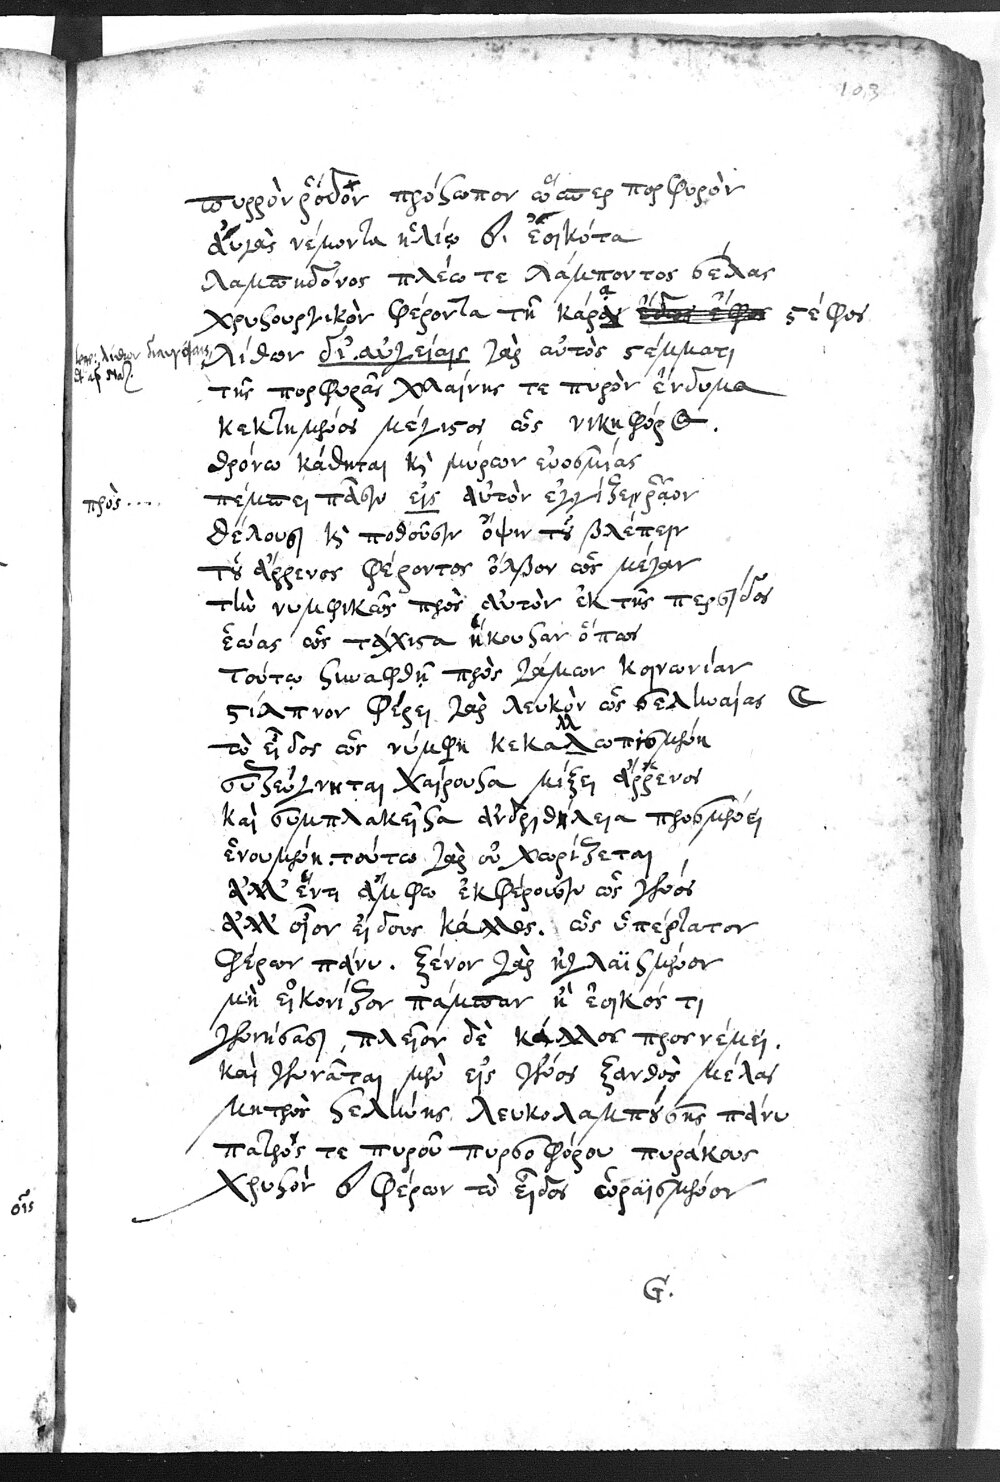 103
πυρρὸν ῥόδον πρόσωπον ὥσπερ πορφυρὸν
αὐγὰς νέμοντα ἡλίῳ δ' ἐοικότα
λαμπηδόνος πλέω τε λάμποντος σέλας
χρυσουργικὸν φέροντα τῇ κάρᾳ στέφος
λίθων διαυγείαις γὰρ αὐτὸς στέμματι
τῆς πορφυρᾶς χλαίνης τε πυρὸν ἔνδυμα
κεκτημένος μέγιστος ὡς νικηφόρος.
θρόνω κάθηται καὶ μύρων εὐοσμίας
πρὸς....
πέμπει πᾶσιν εἰς αὐτὸν ἐγγίζειν ῥᾷον
θέλουσι καὶ ποθοῦσιν ὄψιν τοῦ βλέπειν
τοῦ ἄρρενος φέροντος ὄλβον ὡς μέγαν
τὴν νυμφικῶς πρὸς αὐτὸν ἐκ τῆς περσίδος
ἑώας ὡς τάχιστα ἥκουσαν ὅπως
τούτῳ συναφθῇ πρὸς γάμων κοινωνίαν
στίλπνον φέρει γὰρ λευκὸν ὡς σεληναίας ☾
τὸ εἶδος ὡς νύμφη κεκαλλωπισμένη
συζεύγνηται χαίρουσα μίξει ἄρρενος
καὶ συμπλακεῖσα ἀνδρὶ θήλεια προσμένει
ἑνουμένη τούτω γὰρ οὐ χωρίζεται
ἀλλ' ἔντι ἄμφω ἐκφέρουσιν ὡς γόνος
ἀλλ' οἷον εἴδους κάλλος. ὡς ὑπέρτατον
φέρων πάνυ. ξένον γὰρ ἠγλαϊσμένον
μὴ εἰκονίζον πάμπαν ἢ ἐοικός τι
γονήσασι, πλεῖον δὲ κάλλος προσνέμει.
καὶ γεννᾶται μὲν εἰς γόνος ξανθὸς μέλας
μητρὸς σελήνης λευκολαμπούσης πάνυ
πατρός τε πυροῦ πυρσοφόρου πυράκους
χρυσὸν δὲ φέρων τὸ εἶδος ὡραϊσμένον
οἷς
G.